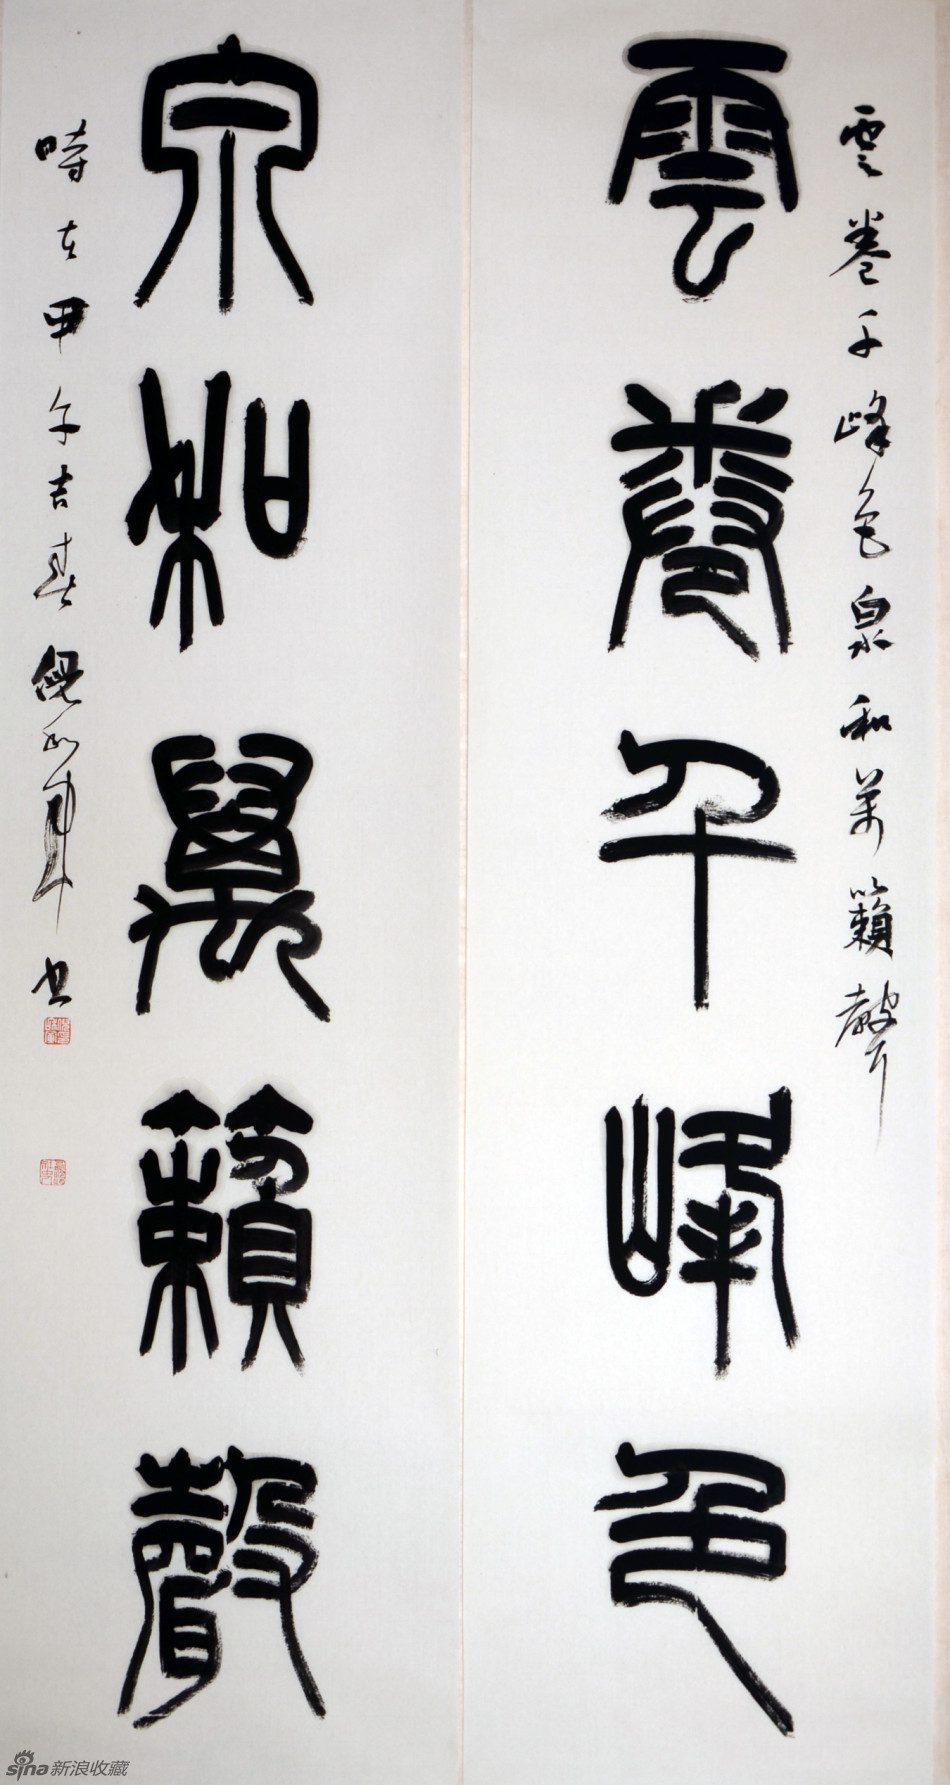 雲卷千峰色泉和萬籟聲
雲卷千峰色
泉和萬籟聲
時在甲午吉春
書
sina新浪收藏